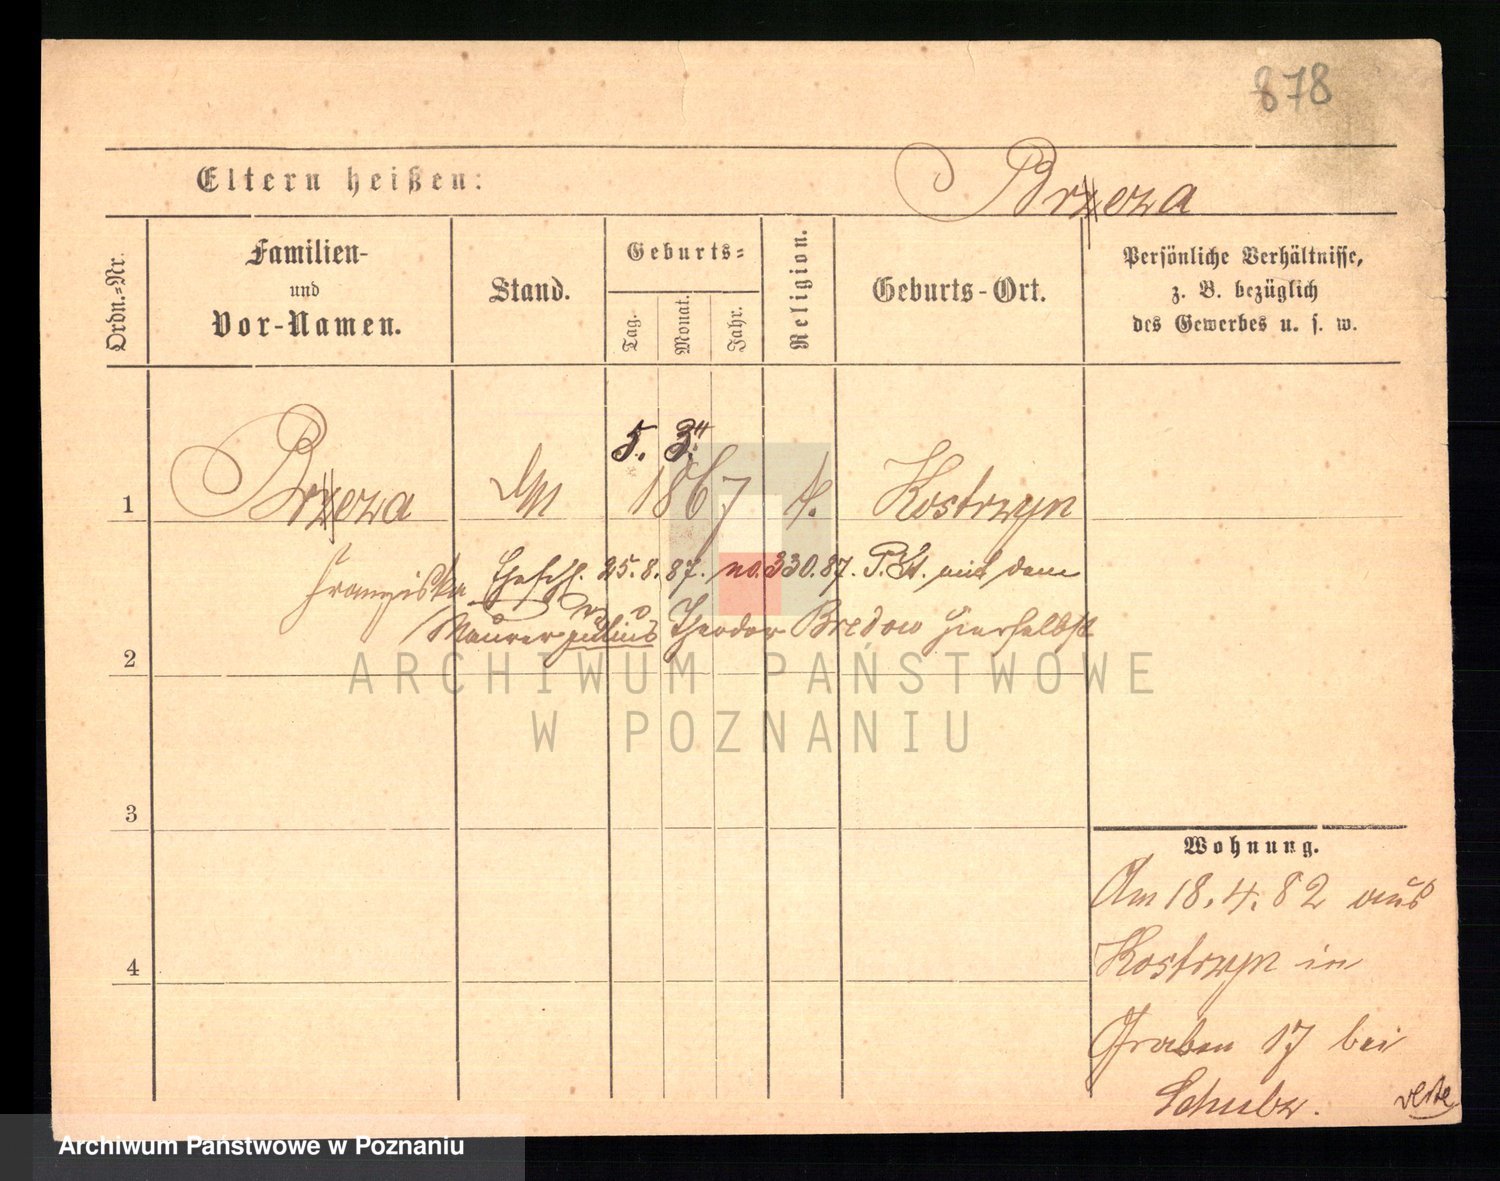 878
Eltern heißen: Brzeza
Ordn.-Nr. Familien- und Vor-Namen. Stand. Geburts- Tag. Monat. Jahr. Religion. Geburts-Ort. Persönliche Verhältnisse, z. B. bezüglich des Gewerbes u. s. w.
5. 3.
1 Brzeza 1867 k. Kostrzyn
Franziska Ehesch. 25.8.87. no. 330.87. P. St. mit dem
Maurer Julius Theodor Bredow hierselbst
2
3
4
Wohnung.
Am 18.4.82 aus
Kostrzyn in
Graben 17 bei
Schubz.
ARCHIWUM PAŃSTWOWE
W POZNANIU
Archiwum Państwowe w Poznaniu